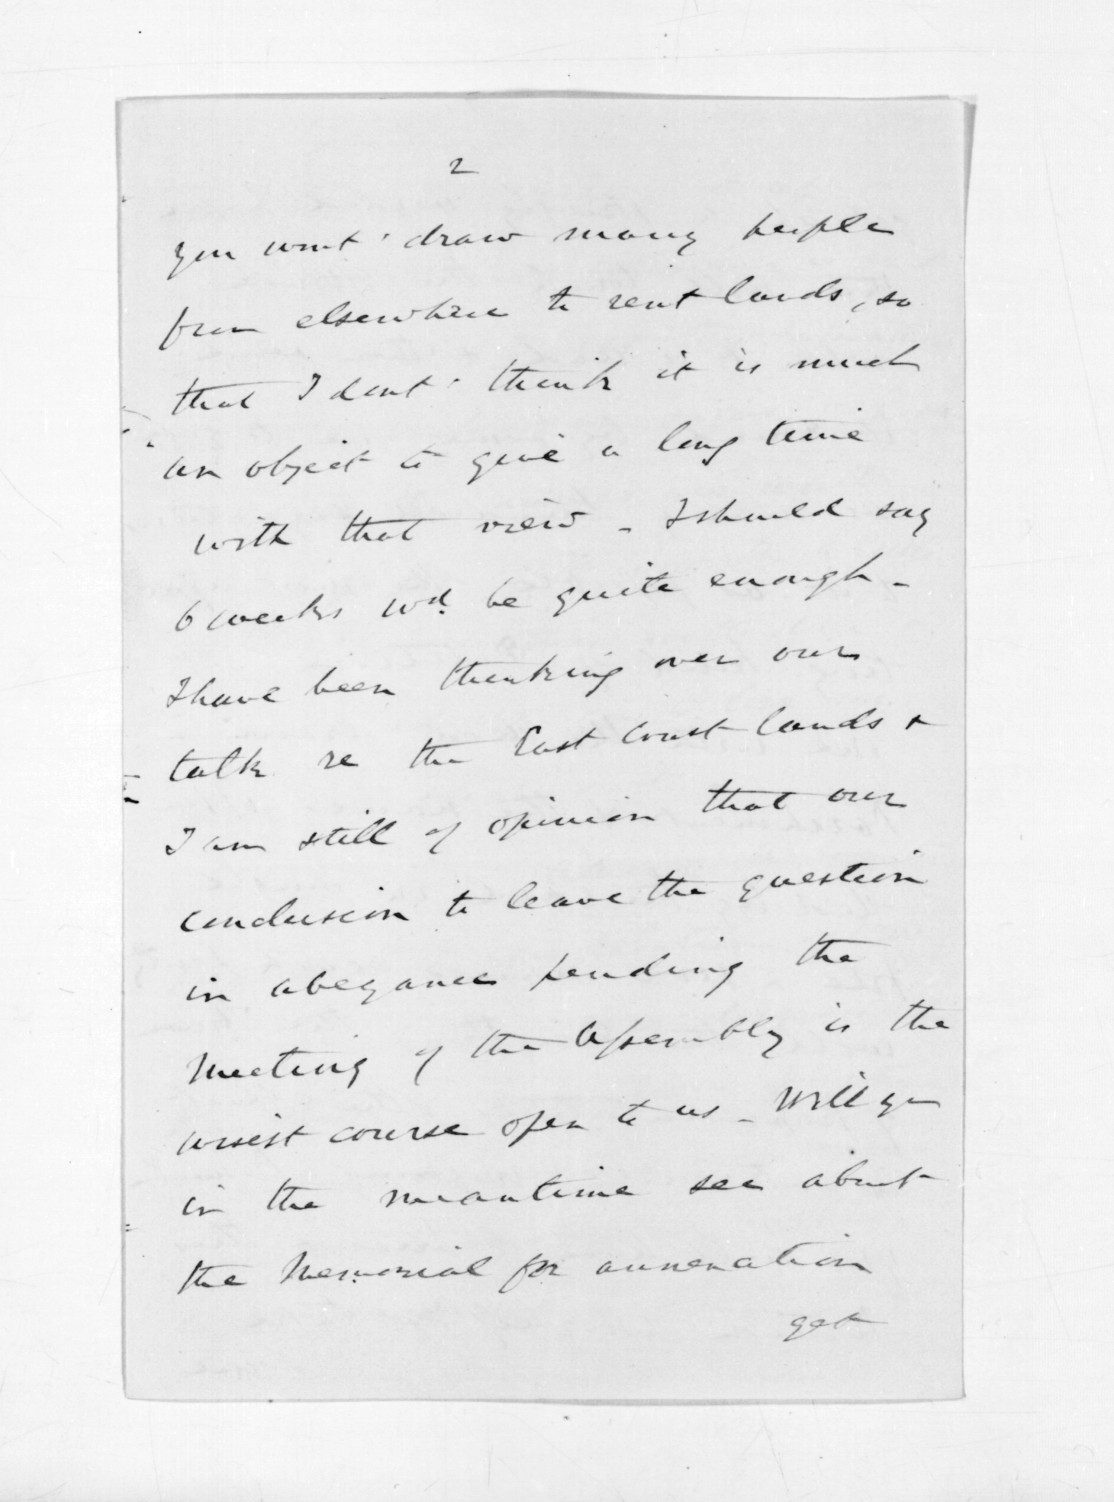 2
you wont draw many people
from elsewhere to rent lands, so
that I dont think it is much
an object to give a long time
with that view - I should say
6 weeks wd. be quite enough -
I have been thinking over our
talk re the East Coast lands &
I am still of opinion that our
conclusion to leave the question
in abeyance pending the
Meeting of the Assembly is the
wisest course open to us - Will you
in the meantime see about
the Memorial for annexation
get